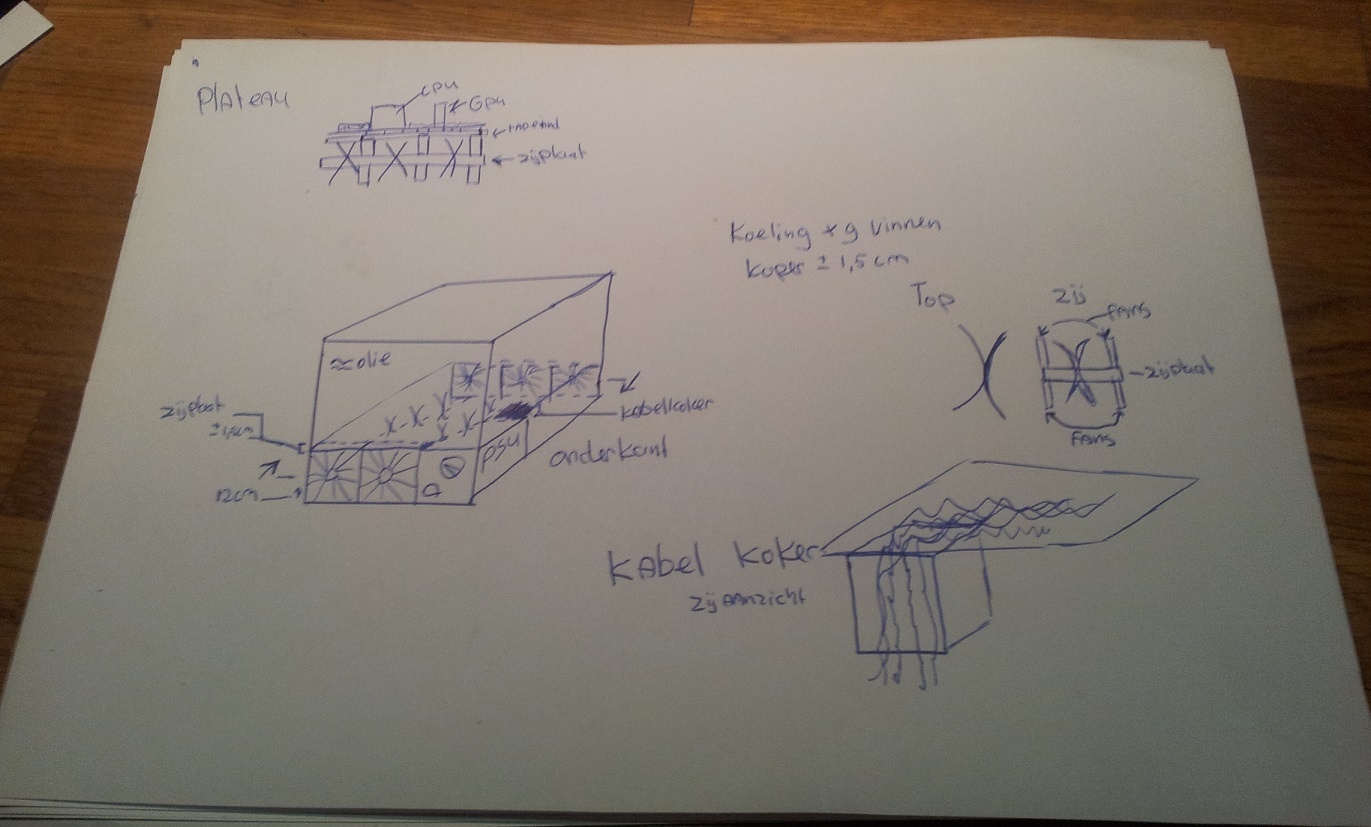 Plateau
CPU
GPU
zijplaat
Koeling * 9 vinnen
koper ± 1,5 cm
Top
zij
fans
zijplaat
fans
≈ olie
zijplaat
± 1,5cm
kabelkoker
psu
onderkant
12cm
Kabel koker
zijaanzicht